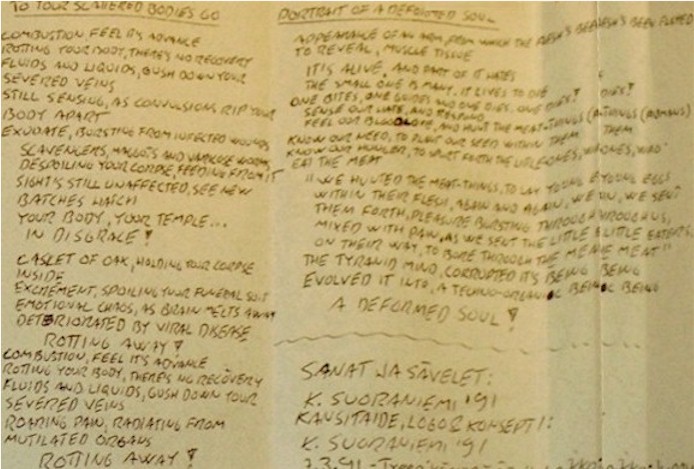 TO YOUR SCATTERED BODIES GO
COMBUSTION, FEEL IT'S ADVANCE
ROTTING YOUR BODY, THERE'S NO RECOVERY
FLUIDS AND LIQUIDS, GUSH DOWN YOUR
SEVERED VEINS
STILL SENSING, AS CONVULSIONS RIP YOUR
BODY APART
EXUDATE, BURSTING FROM INFECTED WOUNDS
SCAVENGERS, MAGGOTS AND VARICOSE WORMS
DESPOILING YOUR CORPSE, FEEDING FROM IT
SIGHT'S STILL UNAFFECTED, SEE NEW
BATCHES HATCH
YOUR BODY, YOUR TEMPLE...
IN DISGRACE!
CASLET OF OAK, HOLDING YOUR CORPSE
INSIDE
EXCREMENT, SPOILING YOUR FUNERAL SUIT
EMOTIONAL CHAOS, AS BRAIN MELTS AWAY
DETERIORATED BY VIRAL DISEASE
ROTTING AWAY!
COMBUSTION, FEEL IT'S ADVANCE
ROTTING YOUR BODY, THERE'S NO RECOVERY
FLUIDS AND LIQUIDS, GUSH DOWN YOUR
SEVERED VEINS
ROARING PAIN, RADIATING FROM
MUTILATED ORGANS
ROTTING AWAY!
PORTRAIT OF A DEFORMED SOUL
APPEARANCE OF AN ARM, FROM WHICH THE FLESH'S BEEN
TO REVEAL, MUSCLE TISSUE
IT'S ALIVE, AND PART OF IT HATES
THE SMALL ONE IS MANY, IT LIVES TO DIE
ONE BITES, ONE GUIDES AND ONE DIES. ONE DIES!
SENSE OUR HATE, AND RESPOND
FEEL OUR AND HUNT THE MEAT-THINGS
KNOW OUR NEED, TO PLANT OUR SEED WITHIN THEM
KNOW OUR HUNGER, TO SPURT FORTH THE LITTLE ONES,
EAT THE MEAT
"WE HUNTED THE MEAT-THINGS, TO LAY YOUNG EGGS
WITHIN THEIR FLESH, AGAIN AND AGAIN, WE SENT
THEM FORTH, PLEASURE BURSTING THROUGH US,
MIXED WITH PAIN, AS WE SENT THE LITTLE EATERS,
ON THEIR WAY, TO BORE THROUGH THE MEAT"
THE TYRANID MIND, CORRUPTED IT'S BEING
EVOLVED IT INTO, A TECHNO-ORGANIC BEING
A DEFORMED SOUL!
SANAT JA SÄVELET:
K. SUORANIEMI '91
KANSITAIDE, LOGO & KONSEPTI:
K. SUORANIEMI '91